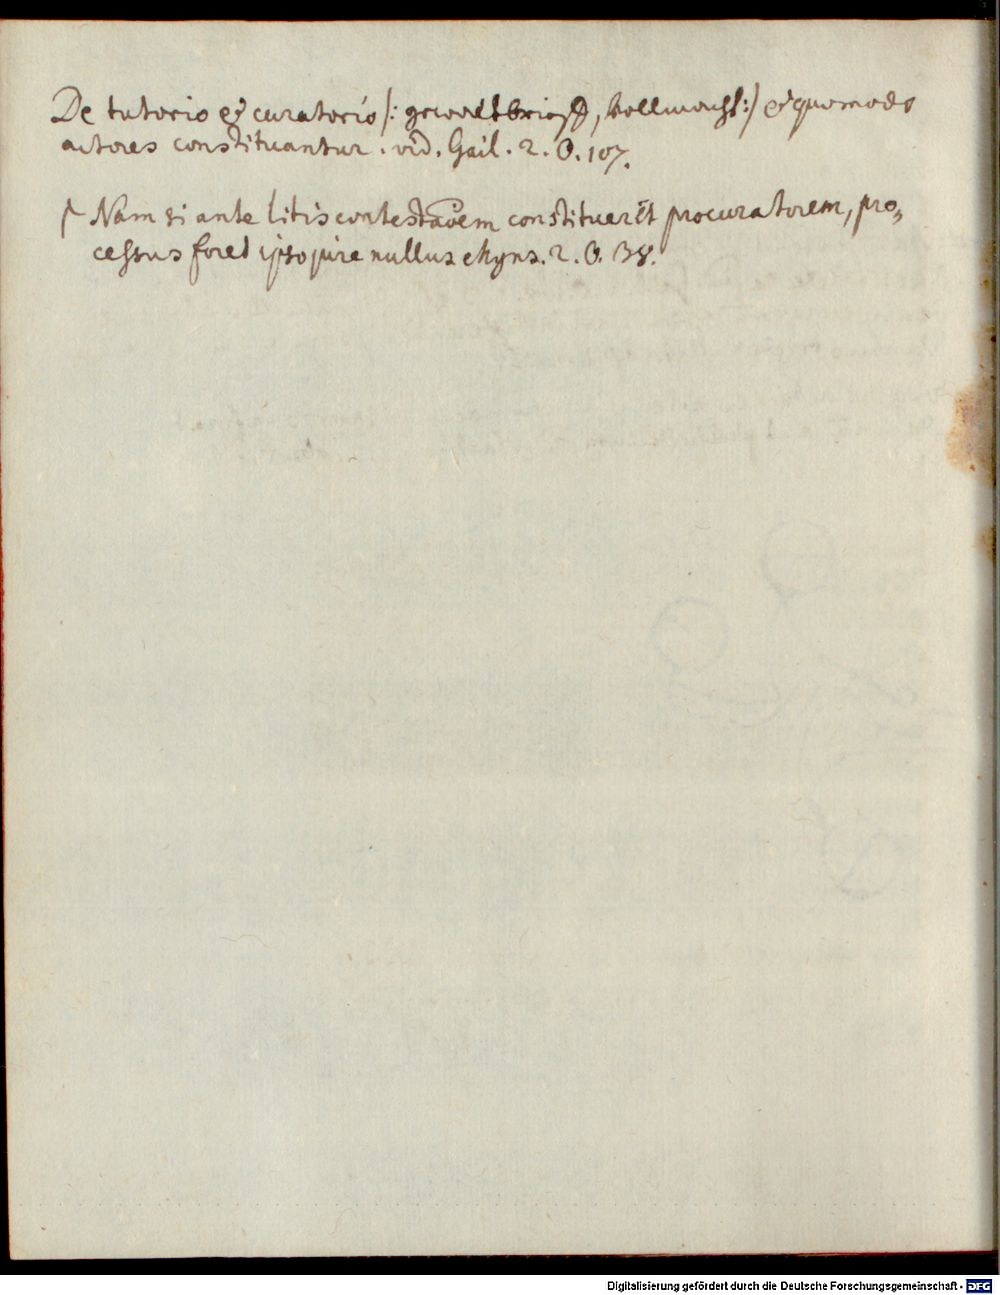 De tutorio et curatorio /: gewaltbrieff, Vollmacht :/ et quomodo
actores constituantur. vid. Gail. 2. O. 107.
Nam si ante litis contestaoem constituerit procuratorem, pro,
cessus foret ipso jure nullus Myns. 2. O. 38.
Digitalisierung gefördert durch die Deutsche Forschungsgemeinschaft - DFG